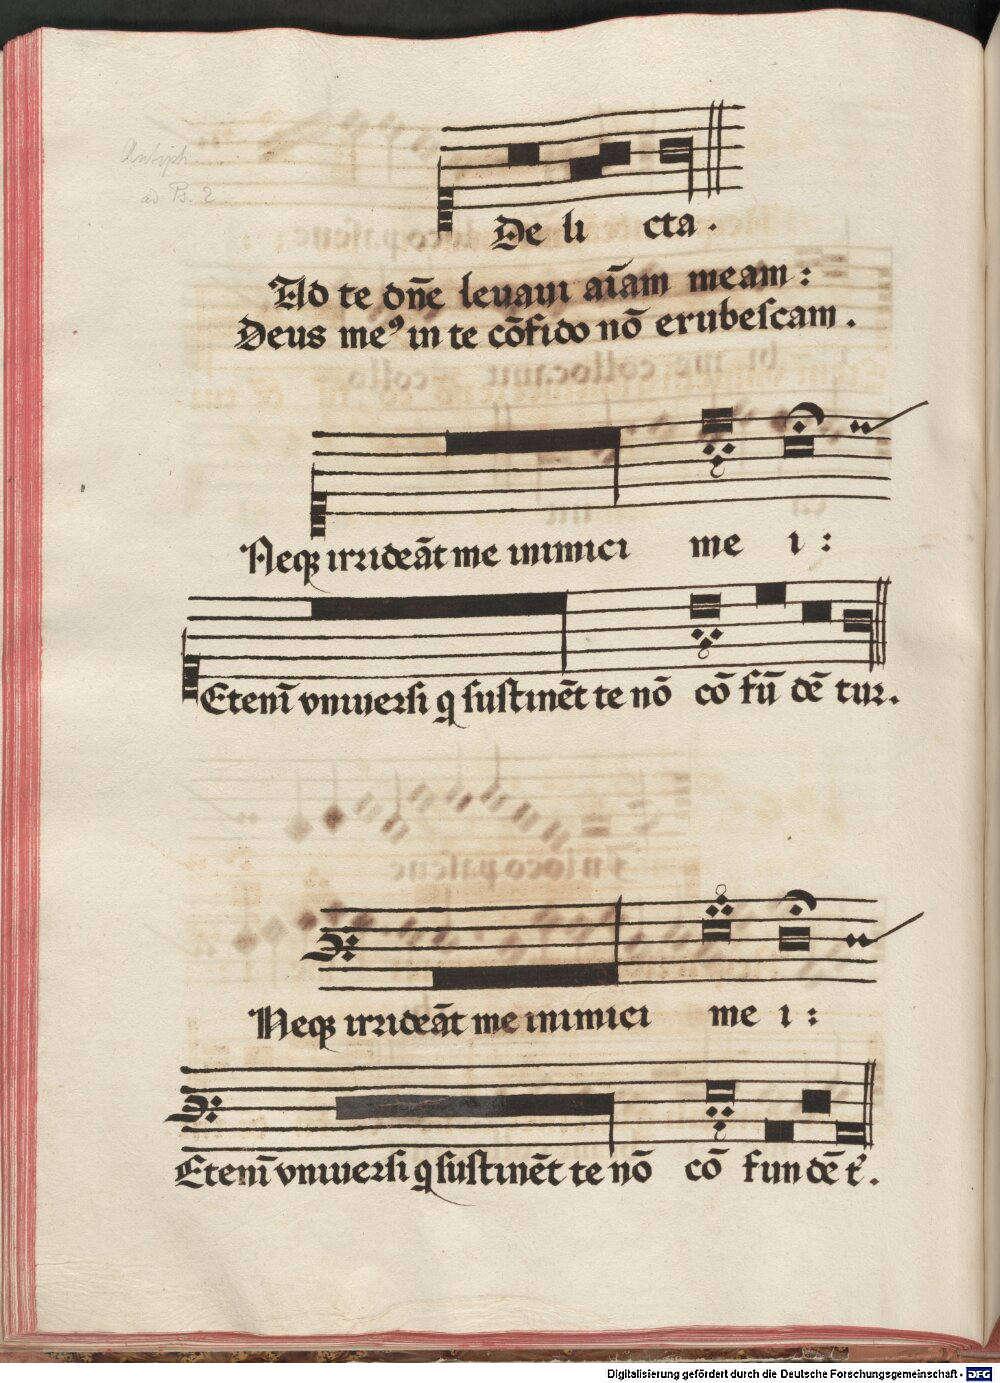 Antiph
ad Ps. 2
De li cta.
Ad te dn̄e levavi aīam meam:
Deus meꝰ in te cōfido nō erubescam.
Neqꝫ irrideāt me inimici me i:
Etenī vniversi q sustinēt te nō cō fū dē tur.
Neqꝫ irrideāt me inimici me i:
Etenī vniversi q sustinēt te nō cō fun dē t᷑.
Digitalisierung gefördert durch die Deutsche Forschungsgemeinschaft - DFG